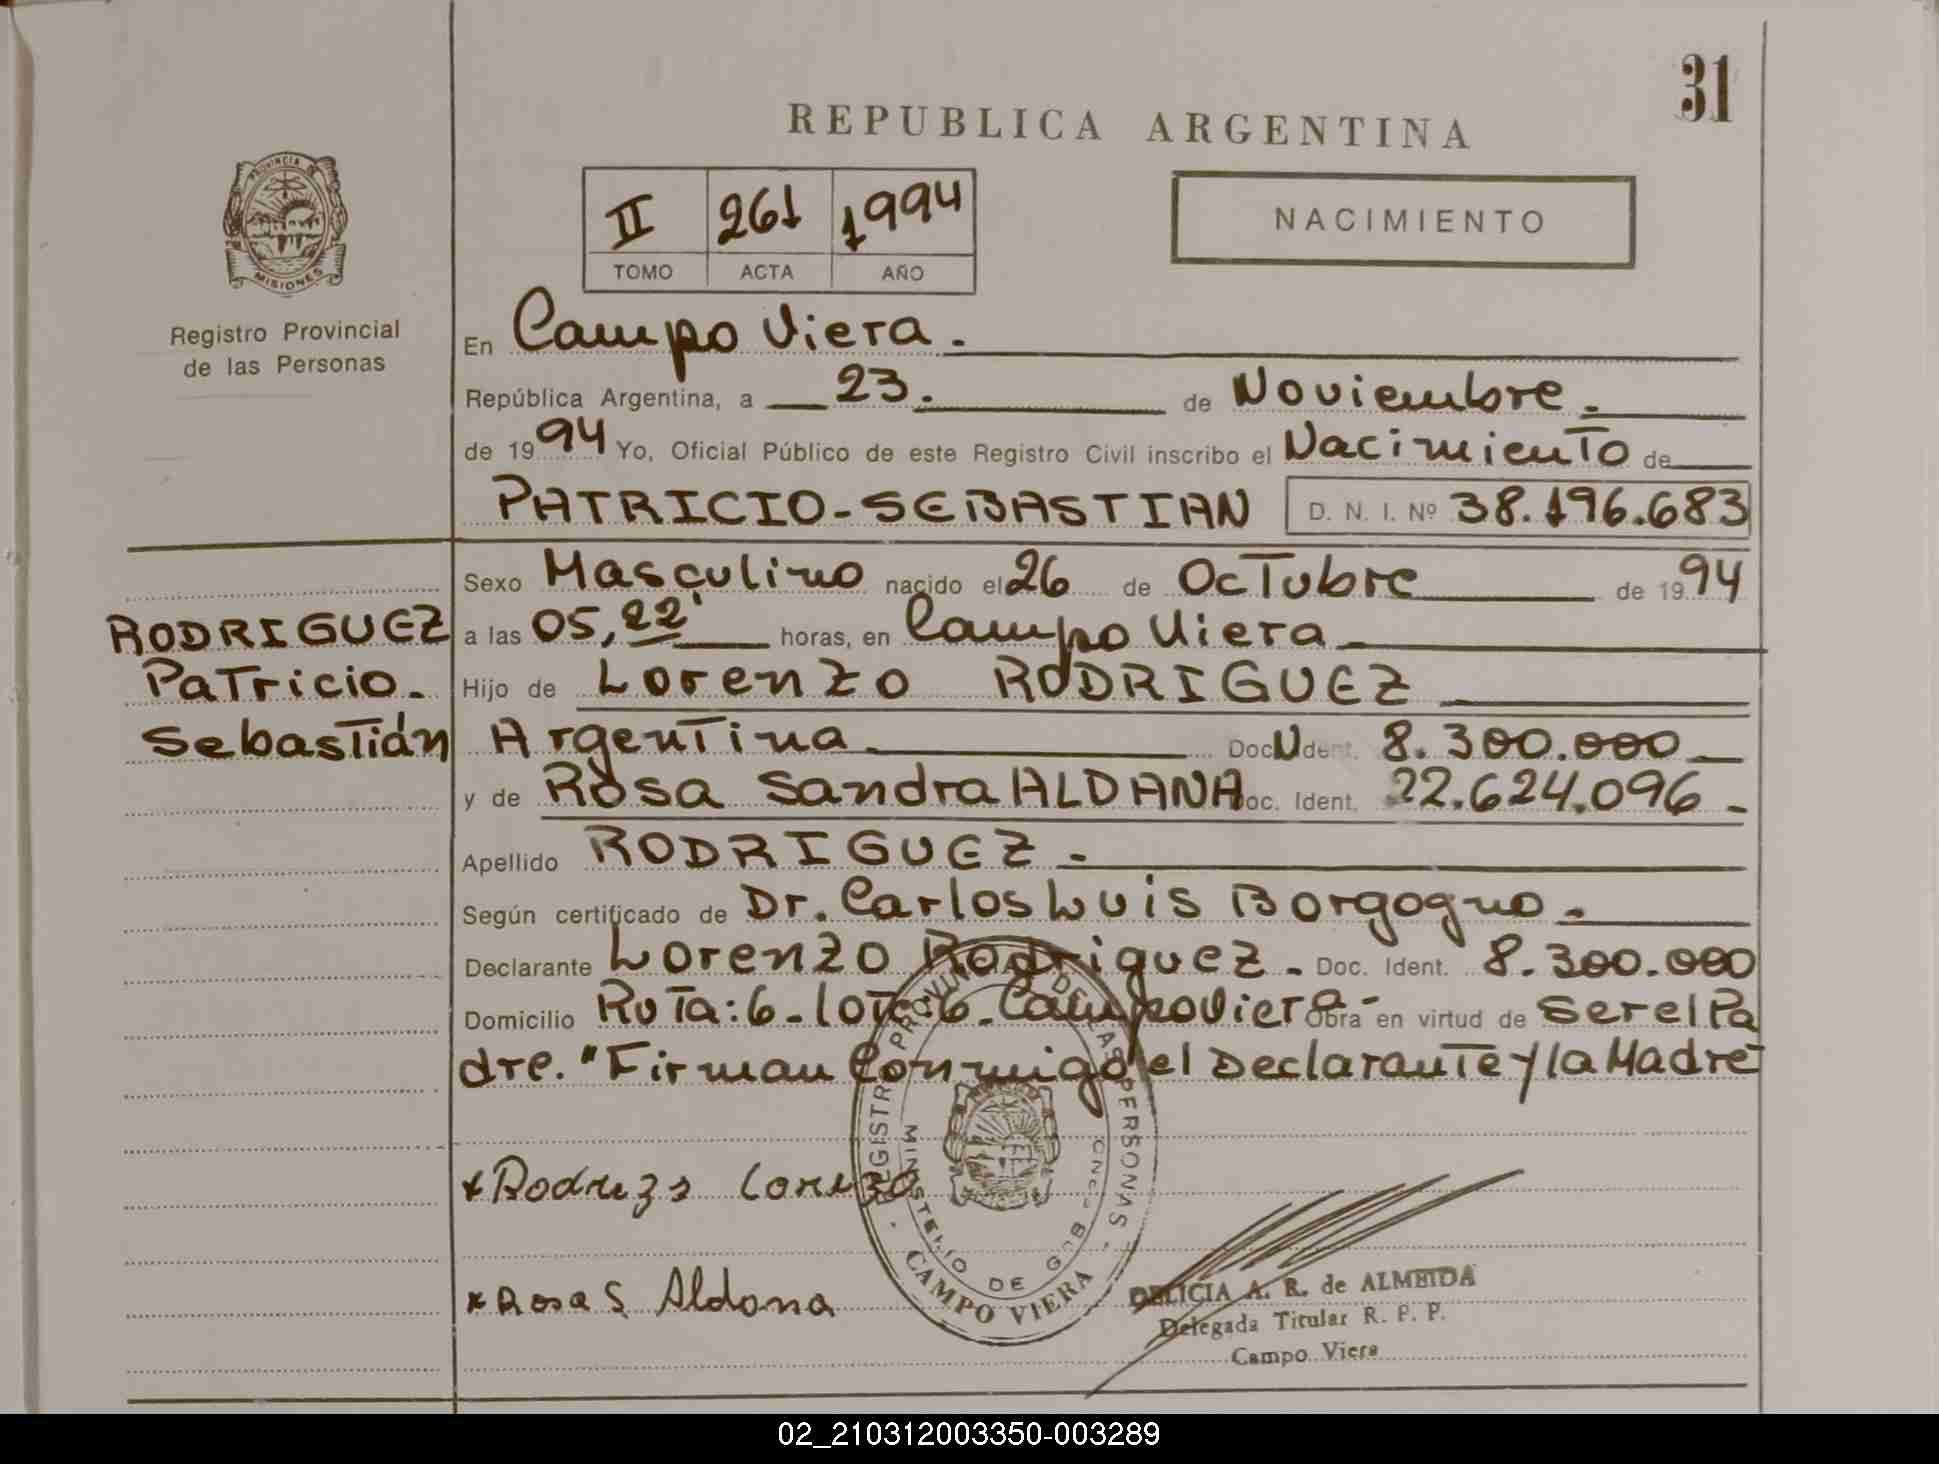 31
REPUBLICA ARGENTINA
II 261 1994
TOMO ACTA AÑO
NACIMIENTO
PROVINCIA DE
MISIONES
Registro Provincial
de las Personas
En Campo Viera.
República Argentina, a 23. de Noviembre.
de 1994 Yo, Oficial Público de este Registro Civil inscribo el Nacimiento de
PATRICIO-SEBASTIAN D. N. I. Nº 38.196.683
Sexo Masculino nacido el 26 de Octubre de 1994
RODRIGUEZ
Patricio-
Sebastián
a las 05,22' horas, en Campo Viera
Hijo de Lorenzo RODRIGUEZ
Argentina Doc. Ident. 8.300.000
y de Rosa Sandra ALDANA Doc. Ident. 22.624.096-
Apellido RODRIGUEZ-
Según certificado de Dr. Carlos Luis Borgogno.
Declarante Lorenzo Rodriguez. Doc. Ident. 8.300.000
Domicilio Ruta:6-lote:6-Campo Viera- Obra en virtud de ser el Pa
dre. "Firman Conmigo el Declarante y la Madre
REGISTRO PROVINCIAL DE LAS PERSONAS
MINISTERIO DE GOB
CAMPO VIERA
x Rosa S Aldana
DELICIA A. R. de ALMEIDA
Delegada Titular R. P. P.
Campo Viera
02_210312003350-003289